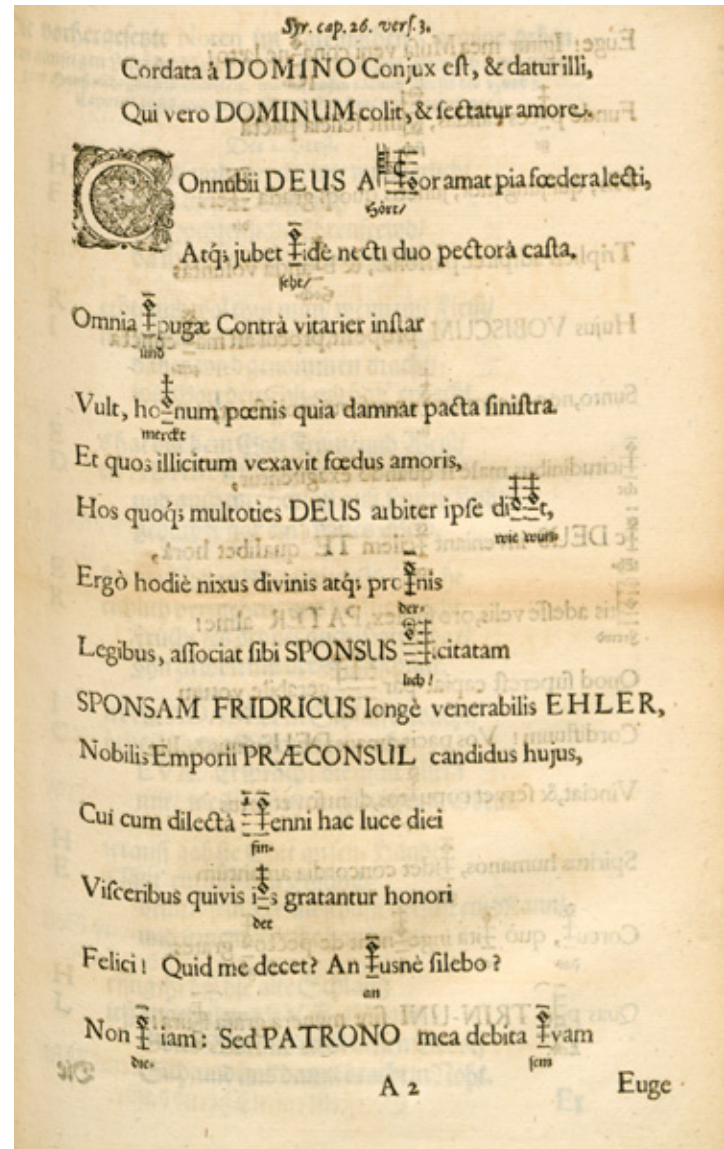 Syr. cap. 26. vers. 3.
Cordata à DOMINO Conjux est, & datur illi,
Qui vero DOMINUM colit, & sectatur amore.
COnnubii DEUS A or amat pia fœdera lecti,
Hört/
Atq; jubet idè necti duo pectora casta.
seht/
Omnia pugæ Contrà vitarier instar
und
Vult, ho num pœnis quia damnat pacta sinistra.
merckt
Et quos illicitum vexavit fœdus amoris,
Hos quoq; multoties DEUS arbiter ipse di t,
wie wun-
Ergò hodiè nixus divinis atq; pro nis
der-
Legibus, associat sibi SPONSUS icitatam
lich!
SPONSAM FRIDRICUS longè venerabilis EHLER,
Nobilis Emporii PRÆCONSUL candidus hujus,
Cui cum dilectâ enni hac luce diei
fin-
Visceribus quivis i s gratantur honori
det
Felici! Quid me decet? An usnè silebo?
an
Non iam: Sed PATRONO mea debita vam
die- sem
A 2 Euge